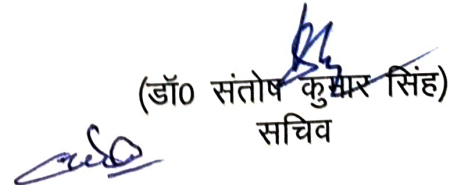 (डॉ0 संतोष कुमार सिंह)
सचिव